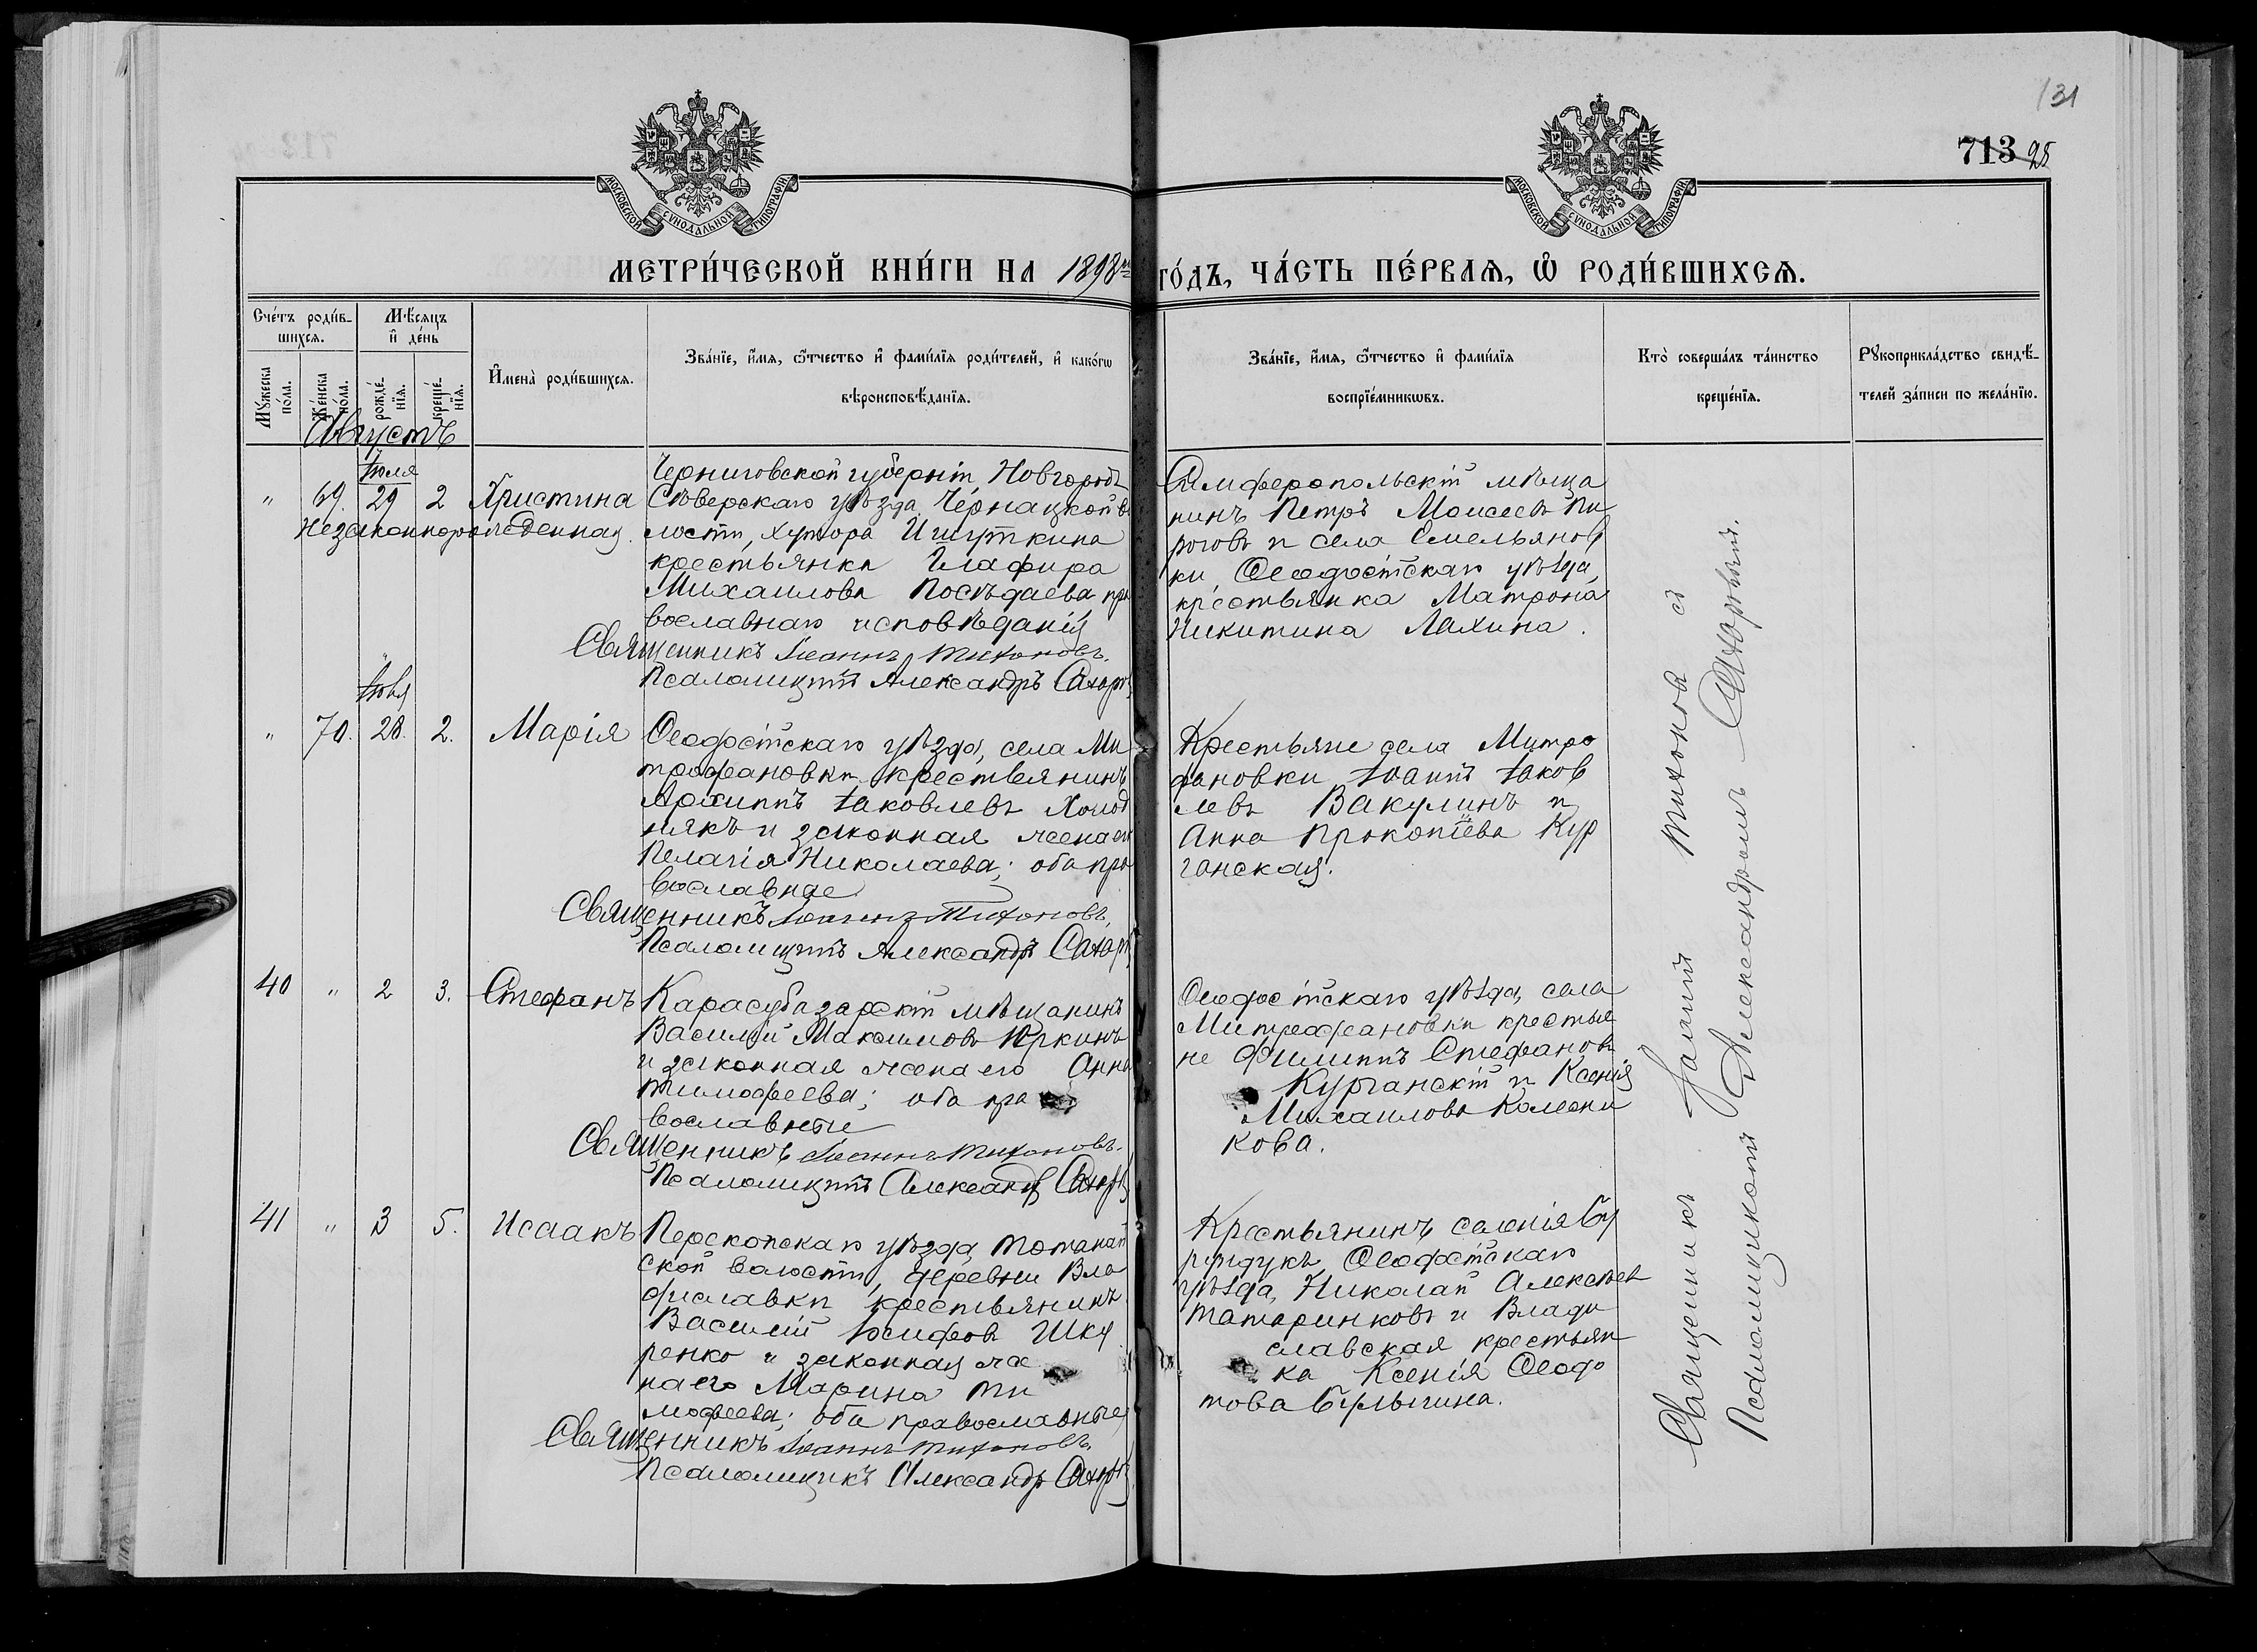 131
713 95
МОСКОВСКОЙ СУНОДАЛЬНОЙ ТИПОГРАФІИ
МОСКОВСКОЙ СУНОДАЛЬНОЙ ТИПОГРАФІИ
МЕТРИ́ЧЕСКОЙ КНИ́ГИ НА 1898й ГО́ДЪ, ЧА́СТЬ ПЕ́РВАѦ, Ѡ҆ РОДИ́ВШИХСѦ.
Сче́тъ роди́в-
шихсѧ.
Мѣ́сѧцъ
и҆ де́нь
Мꙋ́жеска
по́ла.
Же́нска
по́ла.
рожде́-
нїѧ.
креще́-
нїѧ.
И҆мена̀ роди́вшихсѧ.
Зва́нїе, и҆́мѧ, ѻ҆́тчество и҆ фами́лїѧ роди́телей, и҆ како́гѡ
вѣроисповѣ́данїѧ.
Зва́нїе, и҆́мѧ, ѻ҆́тчество и҆ фами́лїѧ
воспрїе́мникѡвъ.
Кто̀ соверша́лъ та́инство
креще́нїѧ.
Рꙋкоприкла́дство свидѣ́-
телей за́писи по жела́нїю.
Августъ
Іюля
" 69. 29 2 Христина
Незаконнорожденная.
Черниговской губерніи, Новгородъ
Сѣверскаго уѣзда, Чернацкой во
лости, хутора Ишуткина
крестьянка Глафира
Михаилова Посѣдаева пра
вославнаго исповѣданія
Священникъ Іоаннъ Тихоновъ.
Псаломщикъ Александръ
Симферопольскій мѣща
нинъ Петръ Моисеевъ Пи
роговъ и села Емельянов
ки, Ѳеодосійскаго уѣзда,
крестьянка Матрона
Никитина Лахина.
Іюля
" 70. 28. 2. Марія
Ѳеодосійскаго уѣзда, села Ми
трофановки крестьянинъ
Архиппъ Іаковлевъ Холод
някъ и законная жена его
Пелагія Николаева; оба пра
вославные
Священникъ Іоаннъ Тихоновъ.
Псаломщикъ Александръ
Крестьяне села Митро
фановки Іоаннъ Іаков
левъ Вакулинъ и
Анна Прокопіева Кур
ганская.
40 " 2 3. Стефанъ
Карасубазарскій мѣщанинъ
Василій Максимовъ Юркинъ
и законная жена его Анна
Тимофеева; оба пра
вославные
Священникъ Іоаннъ Тихоновъ.
Псаломщикъ Александръ
Ѳеодосійскаго уѣзда, села
Митрофановки крестья
не Филиппъ Стефановъ
Курганскій и Ксенія
Михаилова Колесни
кова.
41 " 3 5. Исаакъ
Перекопскаго уѣзда,
ской волости, деревни Вла
диславки крестьянинъ
Василій Іосифовъ Шку
ренко и законная же
на его Марина Ти
мофеева; оба православные
Священникъ Іоаннъ Тихоновъ.
Псаломщикъ Александръ
Крестьянинъ селенія Бу
рундукъ Ѳеодосійскаго
уѣзда, Николай Алексѣев
Татаринковъ и Влади
славская крестьян
ка Ксенія Ѳеодо
това Булыгина.
Священникъ Іоаннъ Тихоновъ съ
Псаломщикомъ Александромъ